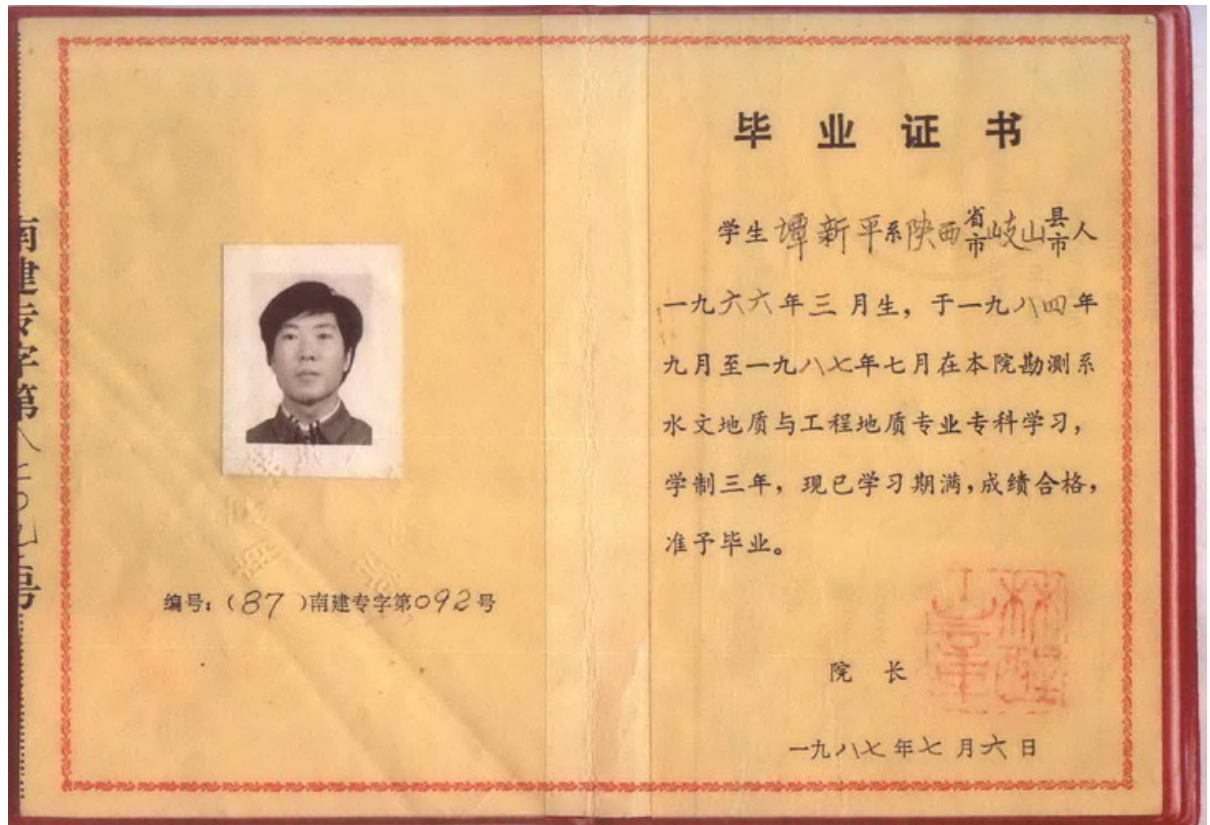 南建专字第八七〇九二号
编号：（87）南建专字第092号
毕业证书
学生谭新平系陕西省市岐山县市人
一九六六年三月生，于一九八四年
九月至一九八七年七月在本院勘测系
水文地质与工程地质专业专科学习，
学制三年，现已学习期满，成绩合格，
准予毕业。
院长
一九八七年七月六日